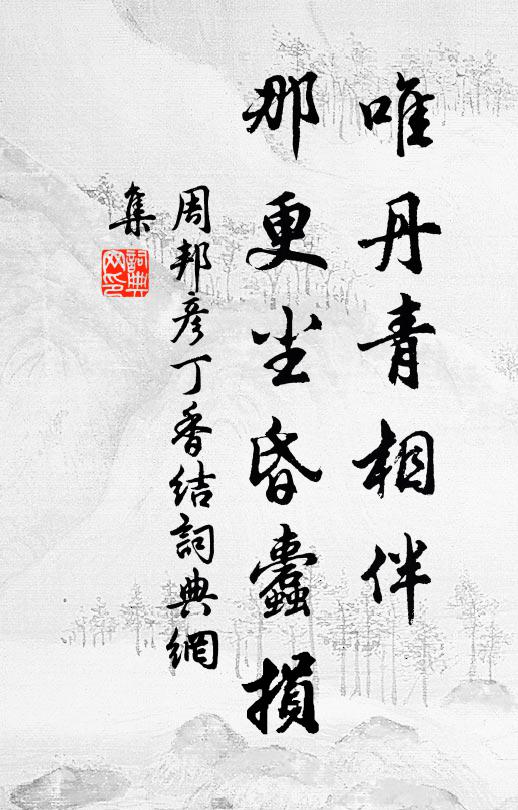 唯丹青相伴
那更尘昏蠹損
周邦彦丁香结詞典網
集
詞典網印